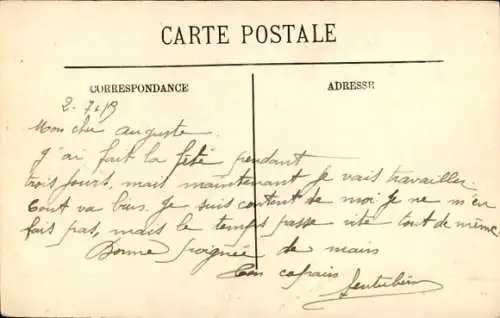 CARTE POSTALE
CORRESPONDANCE
ADRESSE
2-7-19
Mon cher Auguste
J'ai fait la fête pendant
trois jours, mais maintenant je vais travailler.
Tout va bien. Je suis content de moi je ne m'en
fais pas, mais le temps passe vite tout de même.
Bonne poignée de main
Ton copain